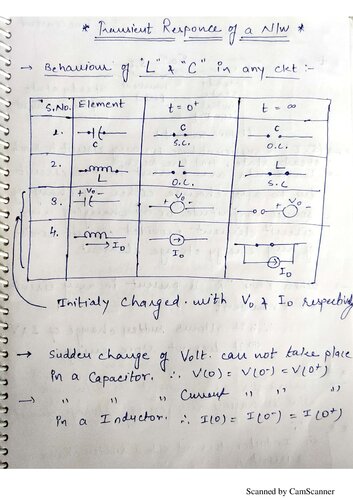 * Transient Responce of a N/W *
→ Behaviour of "L" & "C" in any ckt :-
S.No. Element t = 0⁺ t = ∞
1. C C S.C. C O.C.
2. L L O.C. L S.C.
3. + V₀ - - V₀ + - V₀ +
4. I₀ I₀ I₀
Initialy charged with V₀ & I₀ respectively
→ Sudden change of Volt. can not take place
In a Capacitor. ∴ V(0) = V(0⁻) = V(0⁺)
→ " " " Current " " "
In a Inductor. ∴ I(0) = I(0⁻) = I(0⁺)
Scanned by CamScanner